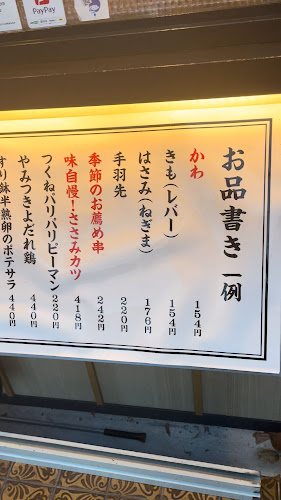 PayPay
お品書き 一例
かわ 154円
きも(レバー) 154円
はさみ(ねぎま) 176円
手羽先 220円
季節のお薦め串 242円
味自慢!ささみカツ 418円
つくねパリパリピーマン 220円
やみつきよだれ鶏 440円
すり鉢半熟卵のポテサラ 440円